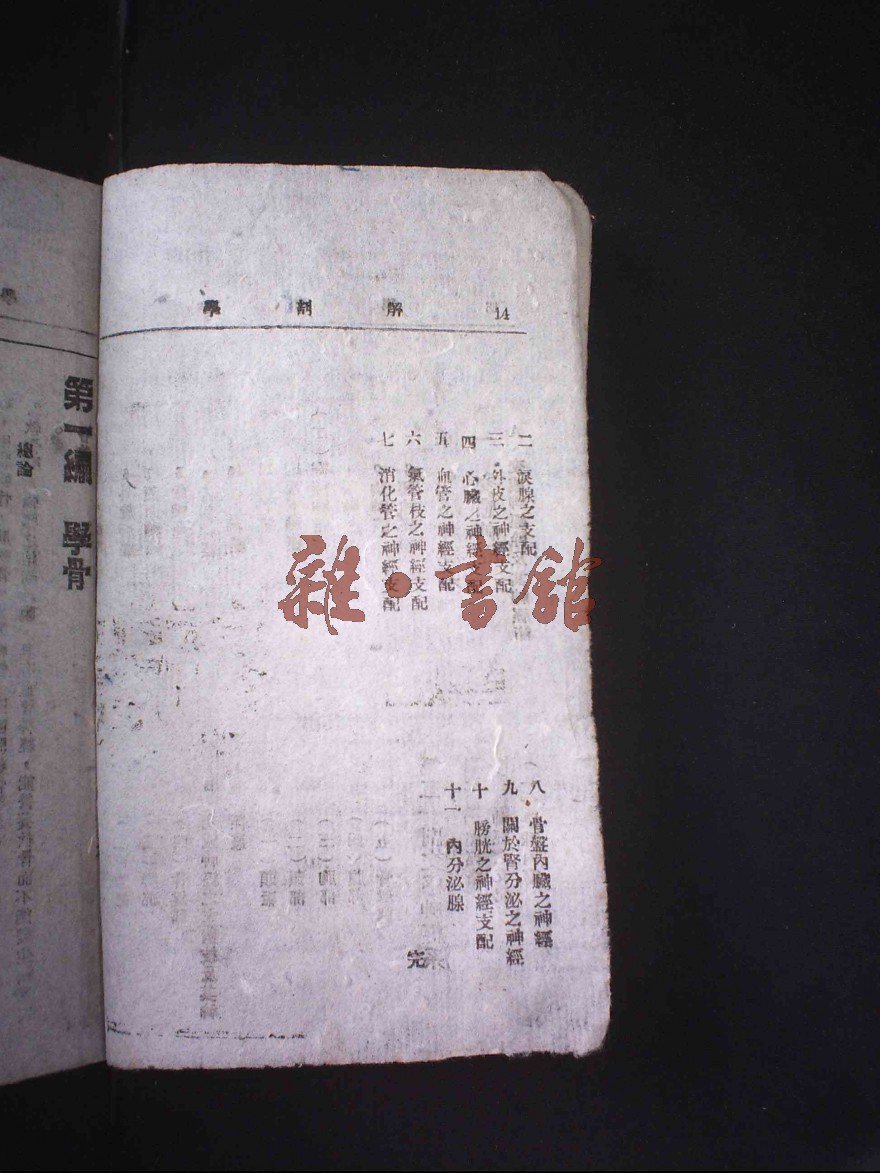 14 解剖學
二 淚腺之支配
三 外皮之神經支配
四 心臟之神經支配
五 血管之神經支配
六 氣管枝之神經支配
七 消化管之神經支配
八 骨盤內臟之神經
九 關於腎分泌之神經
十 膀胱之神經支配
十一 內分泌腺
完
第一編 學骨
總論
雜·書館